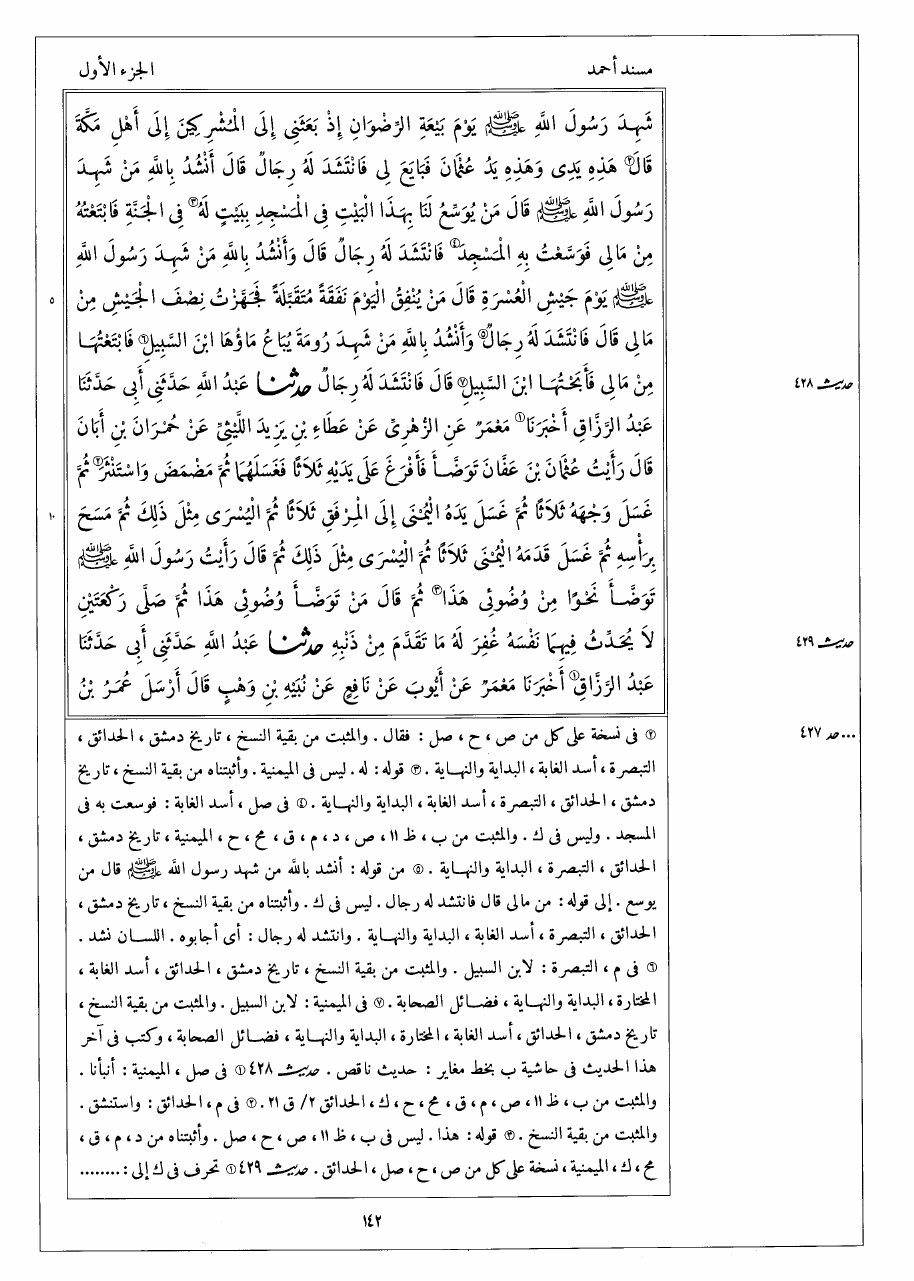 مسند أحمد
الجزء الأول
شَهِدَ رَسُولَ اللهِ ﷺ يَوْمَ بَيْعَةِ الرِّضْوَانِ إِذْ بَعَثَنِى إِلَى الْمُشْرِكِينَ إِلَى أَهْلِ مَكَّةَ
قَالَ② هَذِهِ يَدِى وَهَذِهِ يَدُ عُثْمَانَ فَبَايَعَ لِى فَانْتَشَدَ لَهُ رِجَالٌ قَالَ أَنْشُدُ بِاللهِ مَنْ شَهِدَ
رَسُولَ اللهِ ﷺ قَالَ مَنْ يُوَسِّعُ لَنَا بِهَذَا الْبَيْتِ فِى الْمَسْجِدِ بِبَيْتٍ لَهُ③ فِى الْجَنَّةِ فَابْتَعْتُهُ
مِنْ مَالِى فَوَسَّعْتُ بِهِ الْمَسْجِدَ④ فَانْتَشَدَ لَهُ رِجَالٌ قَالَ وَأَنْشُدُ بِاللهِ مَنْ شَهِدَ رَسُولَ اللهِ
ﷺ يَوْمَ جَيْشِ الْعُسْرَةِ قَالَ مَنْ يُنْفِقُ الْيَوْمَ نَفَقَةً مُتَقَبَّلَةً فَجَهَّزْتُ نِصْفَ الْجَيْشِ مِنْ
٥
مَالِى قَالَ فَانْتَشَدَ لَهُ رِجَالٌ⑤ وَأَنْشُدُ بِاللهِ مَنْ شَهِدَ رُومَةَ يُبَاعُ مَاؤُهَا ابْنَ السَّبِيلِ⑥ فَابْتَعْتُهَا
مِنْ مَالِى فَأَبَحْتُهَا ابْنَ السَّبِيلِ⑦ قَالَ فَانْتَشَدَ لَهُ رِجَالٌ حدثنا عَبْدُ اللهِ حَدَّثَنِى أَبِى حَدَّثَنَا
حديث ٤٢٨
عَبْدُ الرَّزَّاقِ أَخْبَرَنَا① مَعْمَرٌ عَنِ الزُّهْرِىِّ عَنْ عَطَاءِ بْنِ يَزِيدَ اللَّيْثِىِّ عَنْ حُمْرَانَ بْنِ أَبَانَ
قَالَ رَأَيْتُ عُثْمَانَ بْنَ عَفَّانَ تَوَضَّأَ فَأَفْرَغَ عَلَى يَدَيْهِ ثَلَاثًا فَغَسَلَهُمَا ثُمَّ مَضْمَضَ وَاسْتَنْثَرَ② ثُمَّ
غَسَلَ وَجْهَهُ ثَلَاثًا ثُمَّ غَسَلَ يَدَهُ الْيُمْنَى إِلَى الْمِرْفَقِ ثَلَاثًا ثُمَّ الْيُسْرَى مِثْلَ ذَلِكَ ثُمَّ مَسَحَ
١٠
بِرَأْسِهِ ثُمَّ غَسَلَ قَدَمَهُ الْيُمْنَى ثَلَاثًا ثُمَّ الْيُسْرَى مِثْلَ ذَلِكَ ثُمَّ قَالَ رَأَيْتُ رَسُولَ اللهِ ﷺ
تَوَضَّأَ نَحْوًا مِنْ وُضُوئِى هَذَا③ ثُمَّ قَالَ مَنْ تَوَضَّأَ وُضُوئِى هَذَا ثُمَّ صَلَّى رَكْعَتَيْنِ
لاَ يُحَدِّثُ فِيهِمَا نَفْسَهُ غُفِرَ لَهُ مَا تَقَدَّمَ مِنْ ذَنْبِهِ حدثنا عَبْدُ اللهِ حَدَّثَنِى أَبِى حَدَّثَنَا
حديث ٤٢٩
عَبْدُ الرَّزَّاقِ① أَخْبَرَنَا مَعْمَرٌ عَنْ أَيُّوبَ عَنْ نَافِعٍ عَنْ نُبَيْهِ بْنِ وَهْبٍ قَالَ أَرْسَلَ عُمَرُ بْنُ
...حد ٤٢٧
② فى نسخة على كل من ص ، ح ، صل : فقال . والمثبت من بقية النسخ ، تاريخ دمشق ، الحدائق ،
التبصرة ، أسد الغابة ، البداية والنهاية . ③ قوله : له . ليس فى الميمنية . وأثبتناه من بقية النسخ ، تاريخ
دمشق ، الحدائق ، التبصرة ، أسد الغابة ، البداية والنهاية . ④ فى صل ، أسد الغابة : فوسعت به فى
المسجد . وليس فى ك . والمثبت من ب ، ظ ١١ ، ص ، د ، م ، ق ، مح ، ح ، الميمنية ، تاريخ دمشق ،
الحدائق ، التبصرة ، البداية والنهاية . ⑤ من قوله : أنشد بالله من شهد رسول الله ﷺ قال من
يوسع . إلى قوله : من مالى قال فانتشد له رجال . ليس فى ك . وأثبتناه من بقية النسخ ، تاريخ دمشق ،
الحدائق ، التبصرة ، أسد الغابة ، البداية والنهاية . وانتشد له رجال : أى أجابوه . اللسان نشد .
⑥ فى م ، التبصرة : لابن السبيل . والمثبت من بقية النسخ ، تاريخ دمشق ، الحدائق ، أسد الغابة ،
المختارة ، البداية والنهاية ، فضائل الصحابة . ⑦ فى الميمنية : لابن السبيل . والمثبت من بقية النسخ ،
تاريخ دمشق ، الحدائق ، أسد الغابة ، المختارة ، البداية والنهاية ، فضائل الصحابة ، وكتب فى آخر
هذا الحديث فى حاشية ب بخط مغاير : حديث ناقص . حديث ٤٢٨ ① فى صل ، الميمنية : أنبأنا .
والمثبت من ب ، ظ ١١ ، ص ، م ، ق ، مح ، ح ، ك ، الحدائق ٢/ ق ٢١. ② فى م ، الحدائق : واستنشق .
والمثبت من بقية النسخ . ③ قوله : هذا . ليس فى ب ، ظ ١١ ، ص ، ح ، صل . وأثبتناه من د ، م ، ق ،
مح ، ك ، الميمنية ، نسخة على كل من ص ، ح ، صل ، الحدائق . حديث ٤٢٩ ① تحرف فى ك إلى : ........
١٤٢